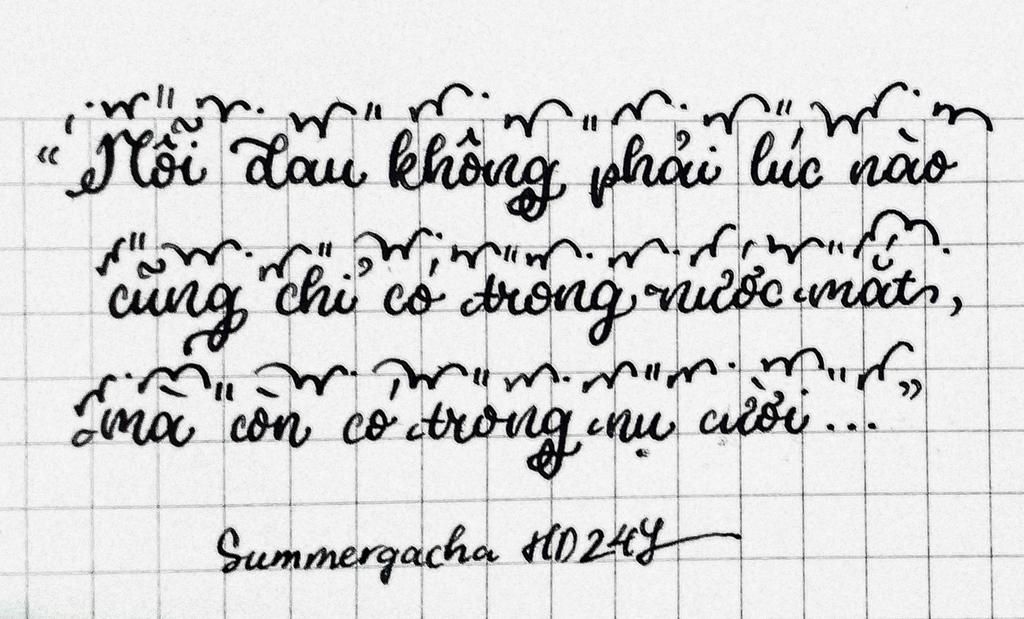 “Nỗi đau không phải lúc nào
cũng chỉ có trong nước mắt,
mà còn có trong nụ cười...”
Summergacha HD24Y